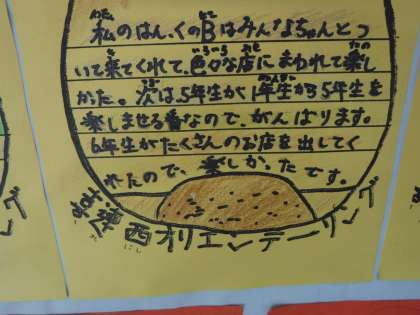 私のはん、くのBはみんなちゃんとつ
いて来てくれて、色々な店にまわれて楽し
かった。次は5年生が1年生から5年生を
楽しませる番なので、がんばります。
6年生がたくさんのお店を出してく
れたので、楽しかったです。
西オリエンテーリング